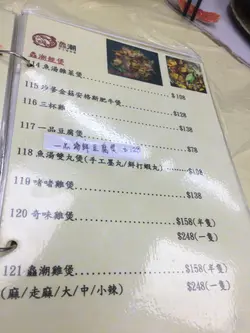 蟲潮
蟲潮雞煲
114 魚湯雜菜煲 $108
115 沙爹金菇安格斯肥牛煲 $138
116 三杯雞 $138
117 一品豆腐煲 $78
一品海鮮豆腐煲
118 魚湯雙丸煲(手工墨丸/鮮打蝦丸) $138
119 啫啫雞煲 $128
120 奇味雞煲 $158(半隻)
$248(一隻)
121 蟲潮雞煲 $158(半隻)
(麻/走麻/大/中/小辣) $248(一隻)